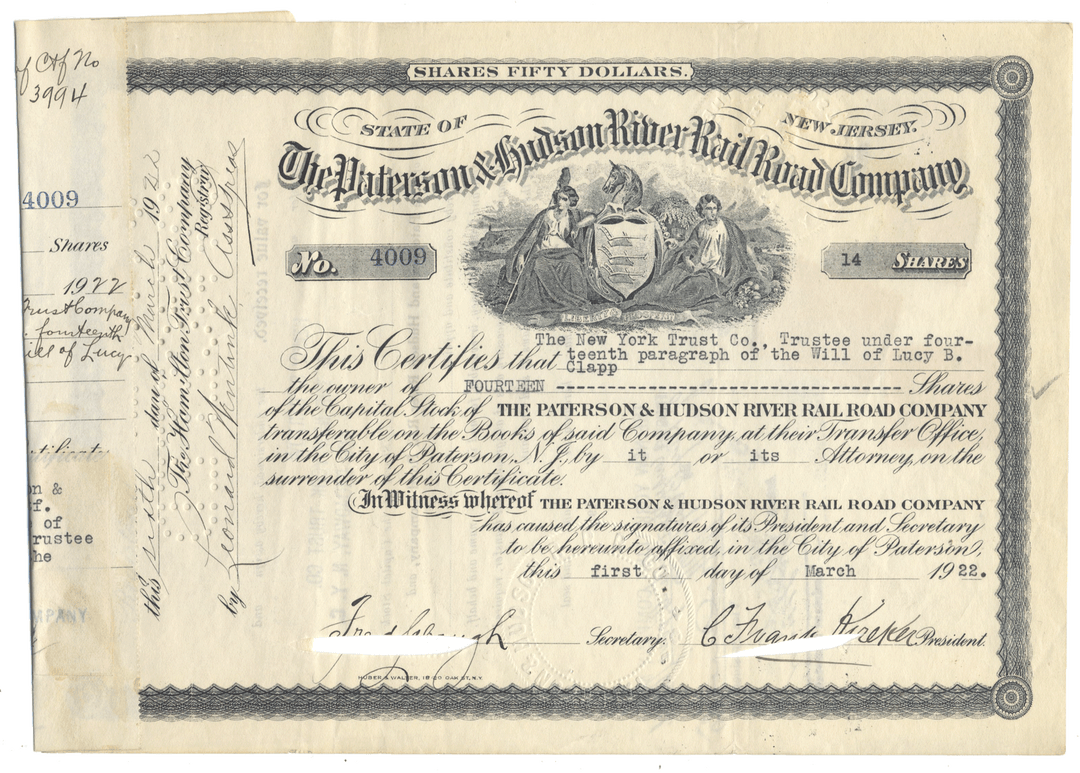 of Ctf No
3994
4009
Shares
1922
Trust Company
fourteenth
Will of Lucy
on &
of
rustee
he
MPANY
this sixth day of March 1922
The Hamilton Trust Company
Registrar
by Leonard Asst Treas
SHARES FIFTY DOLLARS.
STATE OF NEW JERSEY.
The Paterson & Hudson River Rail Road Company
No. 4009
14 SHARES
LIBERTY
This Certifies that The New York Trust Co., Trustee under four-
teenth paragraph of the Will of Lucy B.
Clapp
the owner of FOURTEEN -------------------------------- Shares
of the Capital Stock of THE PATERSON & HUDSON RIVER RAIL ROAD COMPANY
transferable on the Books of said Company, at their Transfer Office,
in the City of Paterson, N.J., by it or its Attorney, on the
surrender of this Certificate.
In Witness whereof THE PATERSON & HUDSON RIVER RAIL ROAD COMPANY
has caused the signatures of its President and Secretary
to be hereunto affixed, in the City of Paterson,
this first day of March 1922.
Secretary. C Frank Kireker President.
HUBER & WALTER, 18-20 OAK ST, N.Y.